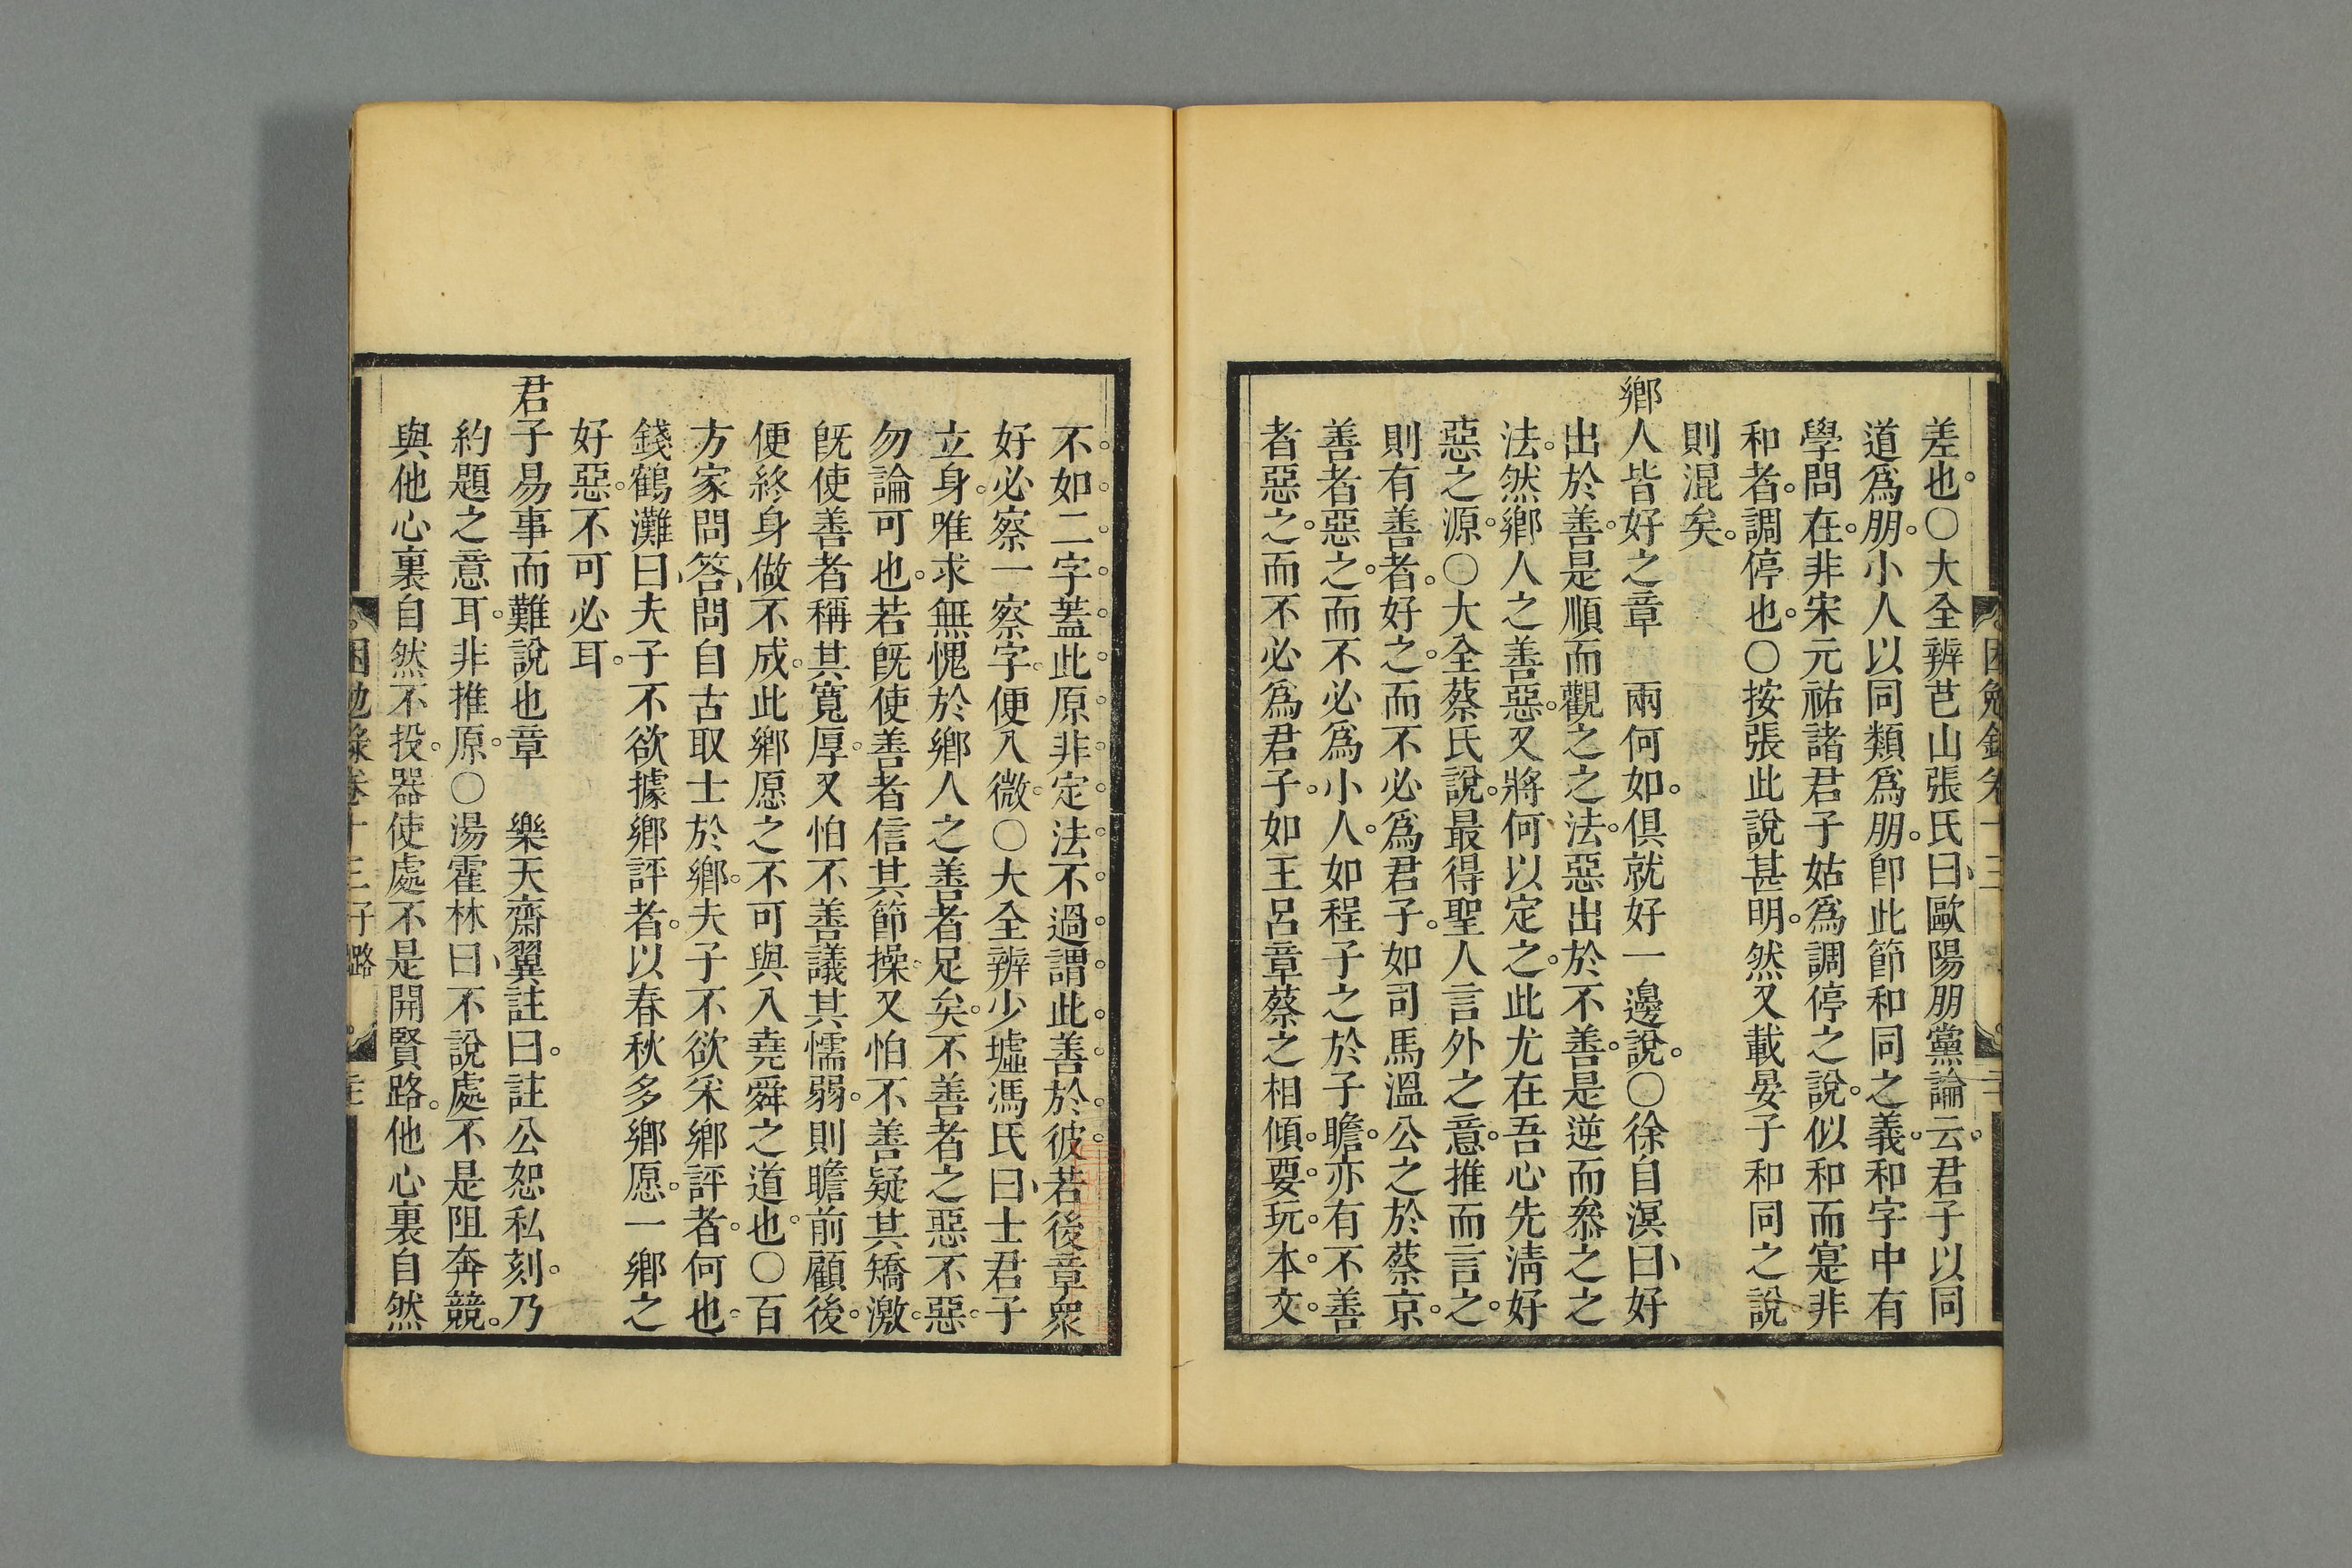 差也。○大全辨芑山張氏曰、歐陽朋黨論云。君子以同
道爲朋。小人以同類爲朋。卽此節和同之義。和字中有
學問在。非宋元祐諸君子姑爲調停之說。似和而寔非
和者。調停也。○按張此說甚明。然又載晏子和同之說。
則混矣。
鄉人皆好之章　兩何如。俱就好一邊說。○徐自溟曰、好
出於善。是順而觀之之法。惡出於不善。是逆而叅之之
法。然鄉人之善惡。又將何以定之。此尤在吾心先淸好
惡之源。○大全蔡氏說。最得聖人言外之意。推而言之。
則有善者。好之。而不必爲君子。如司馬溫公之於蔡京。
善者惡之。而不必爲小人。如程子之於子瞻。亦有不善
者惡之。而不必爲君子。如王呂章蔡之相傾。要。玩。本。文。
不。如。二。字。葢。此。原。非。定。法。不。過。謂。此。善。於。彼。若後章衆
好必察一察字。便入微。○大全辨少墟馮氏曰、士君子
立身。唯求無愧於鄉人之善者足矣。不善者之惡不惡。
勿論可也。若旣使善者信其節操。又怕不善疑其矯激。
旣使善者稱其寬厚。又怕不善議其懦弱。則瞻前顧後。
便終身做不成。此鄉愿之不可與入堯舜之道也。○百
方家問答、問自古取士於鄉。夫子不欲采鄉評者。何也。
錢鶴灘曰、夫子不欲據鄉評者。以春秋多鄉愿。一鄉之
好惡。不可必耳。
君子易事而難說也章　樂天齋翼註曰。註公恕私刻。乃
約題之意耳。非推原。○湯霍林曰、不說處不是阻奔競。
與他心裏自然不投。器使處不是開賢路。他心裏自然
困勉錄卷十三　子路